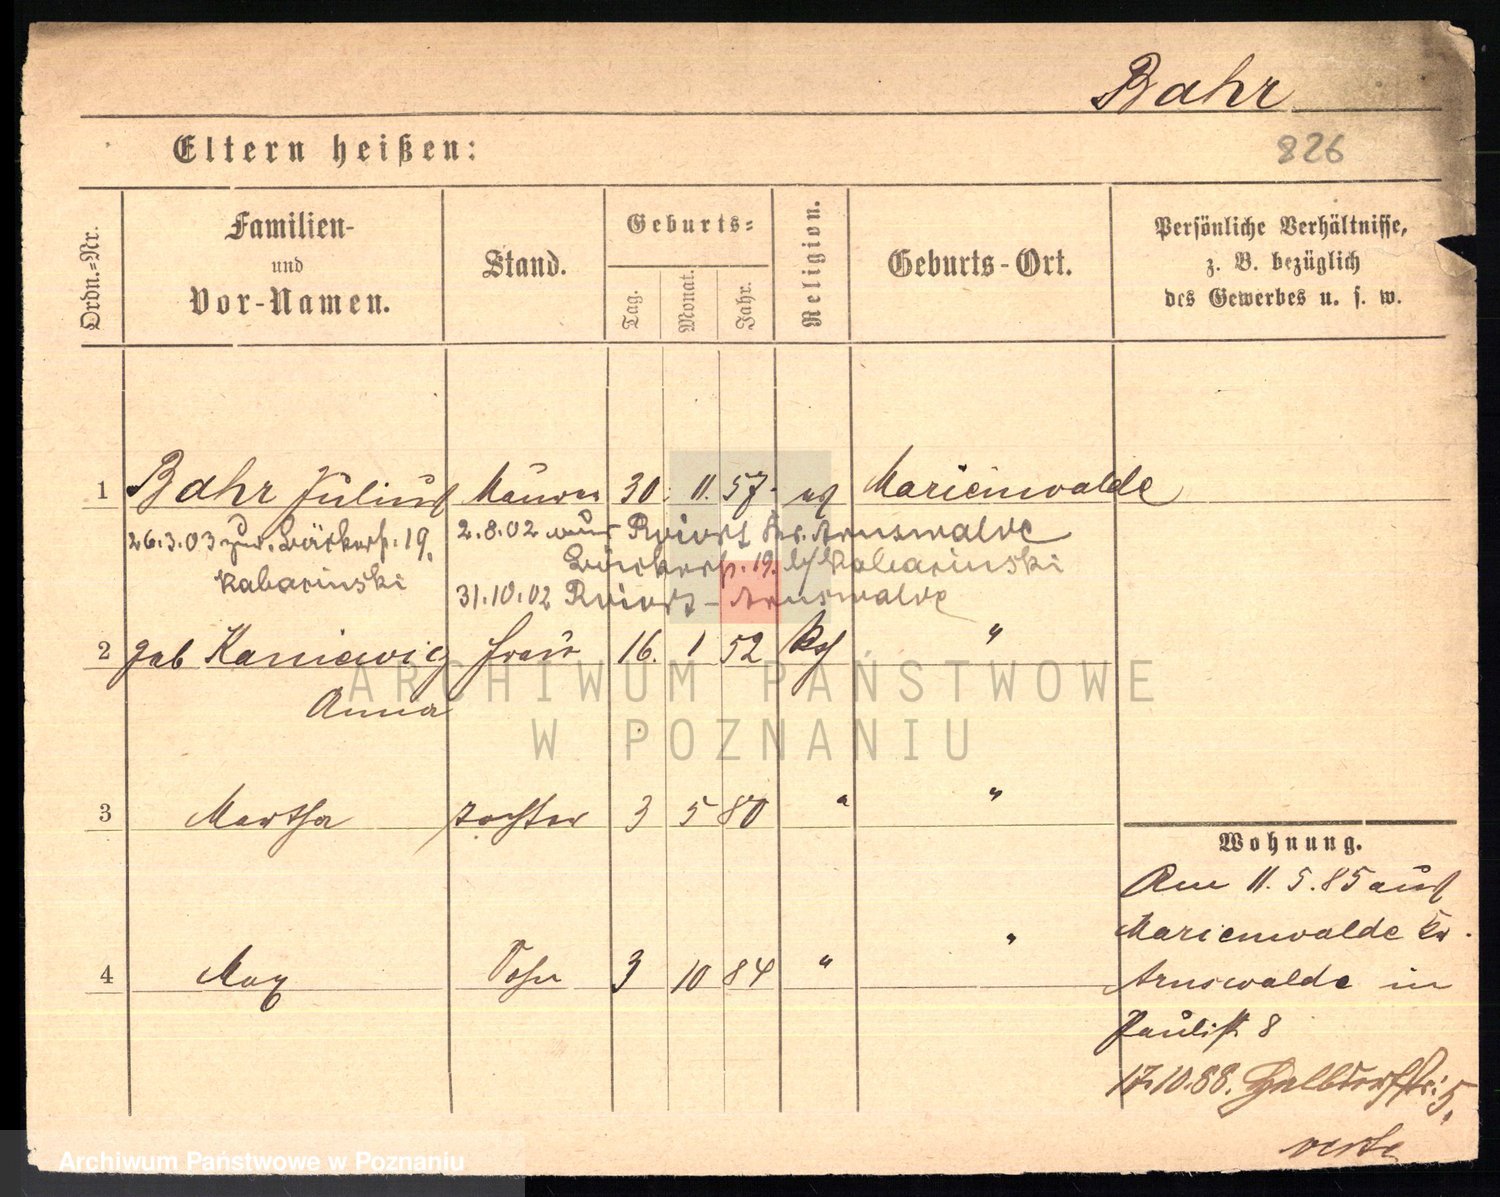 Bahr
826
Eltern heißen:
Ordn.-Nr.
Familien-
und
Vor-Namen.
Stand.
Geburts-
Tag.
Monat.
Jahr.
Religion.
Geburts-Ort.
Persönliche Verhältnisse,
z. B. bezüglich
des Gewerbes u. s. w.
1 Bahr Julius Maurer 30. 11. 57. Marienwalde
26.3.03 zur. Bäckerst. 19. 2.8.02 Arnswalde
Kabarinski Bäckerst. 19. b/ Kabarinski
31.10.02 Arnswalde
2 geb Kaniewig Frau 16. 1 52 "
Anna
ARCHIWUM PAŃSTWOWE
W POZNANIU
3 Martha Tochter 3 5 80 " "
Wohnung.
Am 11.5.85 aus
Marienwalde Kr.
4 Max Sohn 3 10 84 " "
Arnswalde in
Paulist 8
17.10.88. Halbdorfstr. 5.
verte
Archiwum Państwowe w Poznaniu